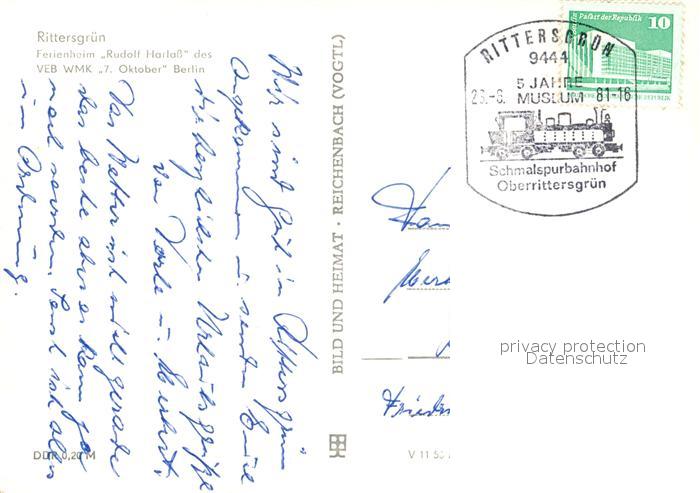 Rittersgrün
Ferienheim „Rudolf Harlaß“ des
VEB WMK „7. Oktober“ Berlin
Wir sind gut in Rittersgrün
angekommen u. senden Euch
die herzlichsten Urlaubsgrüße
von
Das Wetter ist nicht gerade
das beste aber es kann ja
noch werden. Sonst ist alles
in Ordnung.
DDR 0,20 M
BILD UND HEIMAT · REICHENBACH (VOGTL)
V 11 50
Palast der Republik
10
RITTERSGRÜN
9444
5 JAHRE
MUSEUM
81-16
Schmalspurbahnhof
Oberrittersgrün
privacy protection
Datenschutz